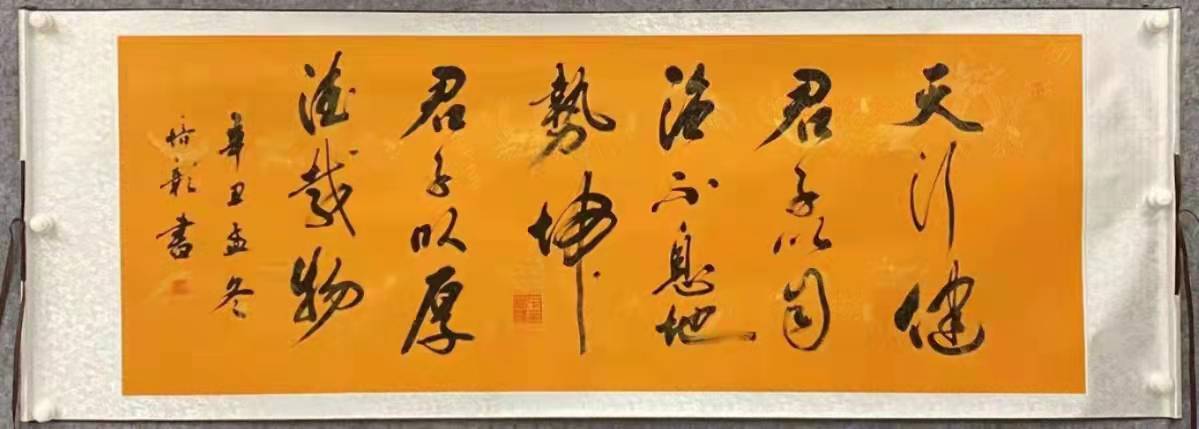 天行健
君子以自
強不息地
勢坤
君子以厚
德載物
辛丑孟冬
書